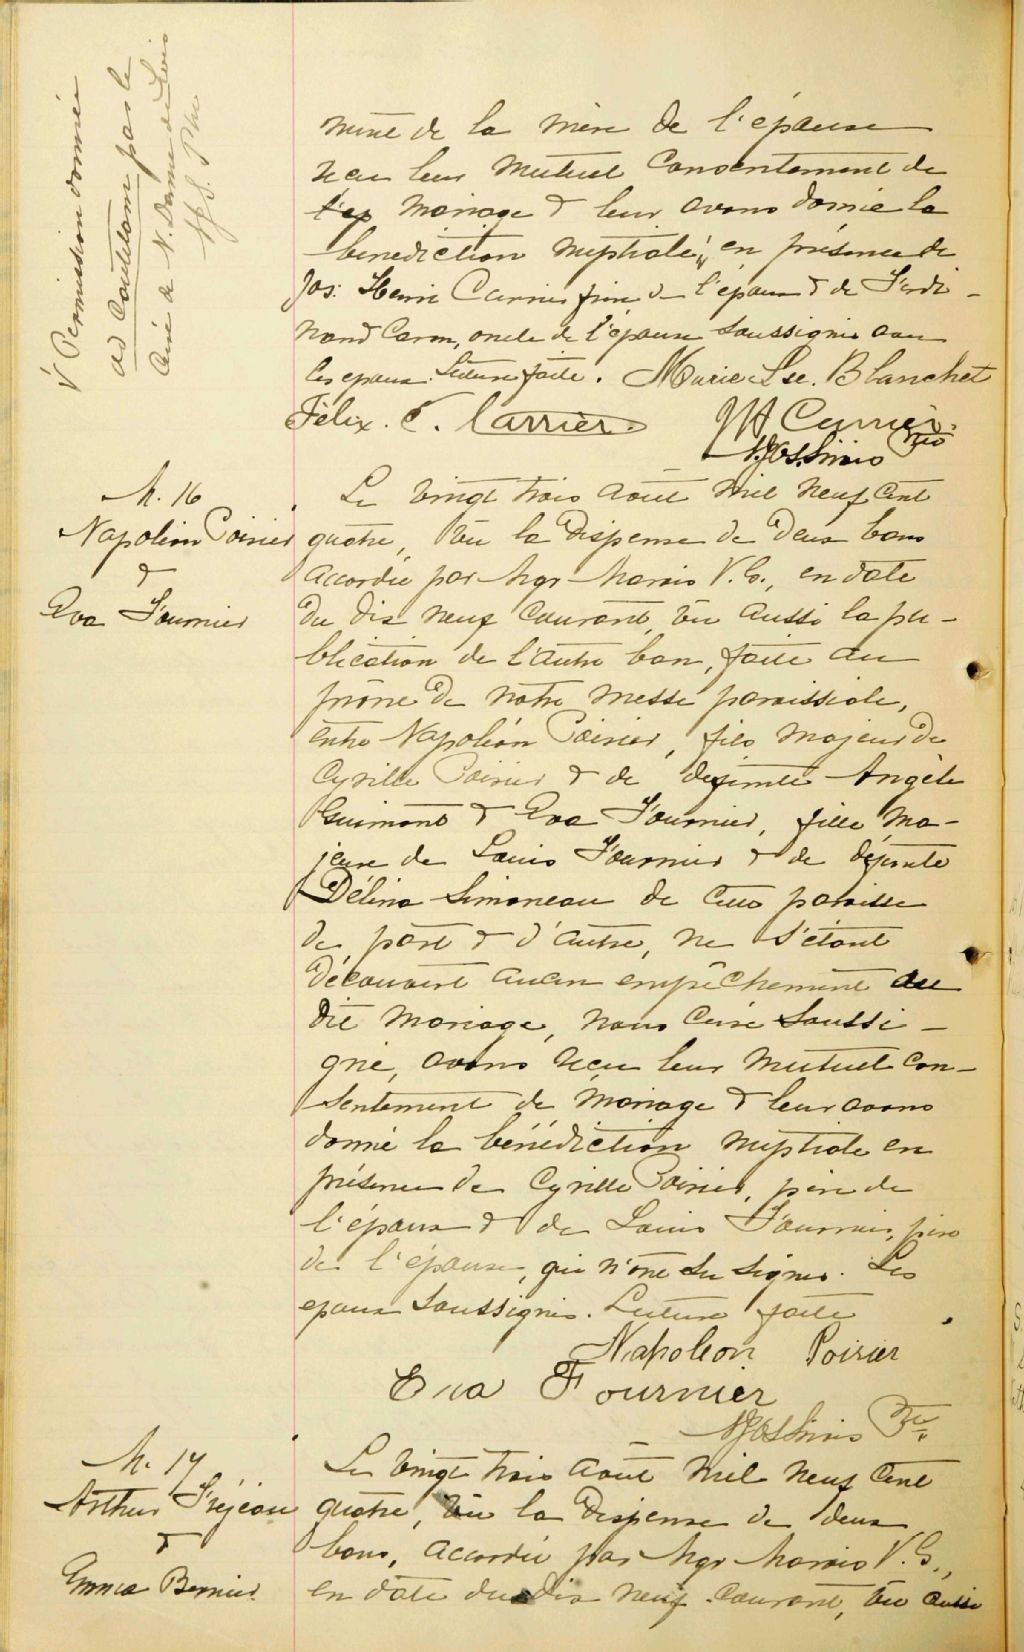 V Permission donnée
ad cautelam par le
Curé de N. Dame de Lévis
miné de la mère de l'épouse
reçu leur mutuel consentement de
mariage & leur avons donné la
bénédiction nuptiale, en présence de
Jos. Henri Carrier frère de l'époux & de Ferdi-
nand Caron, oncle de l'épouse soussignés avec
les époux. Lecture faite. Marie Lse. Blanchet
Félix. E. Carrier. JH Carrier.
Ptre
M. 16
Napoléon Poirier
&
Eva Fournier
Le vingt trois août mil neuf cent
quatre, vu la dispense de deux bans
accordée par Mgr Marois V. G., en date
du dix neuf courant, vu aussi la pu-
blication de l'autre ban, faite au
prône de notre messe paroissiale,
entre Napoléon Poirier, fils majeur de
Cyrille Poirier & de défunte Angèle
Guimont & Eva Fournier, fille ma-
jeure de Louis Fournier & de défunte
Délina Simoneau de cette paroisse
de part & d'autre, ne s'étant
découvert aucun empêchement au
dit mariage, nous Curé soussi-
gné, avons reçu leur mutuel con-
sentement de mariage & leur avons
donné la bénédiction nuptiale en
présence de Cyrille Poirier, père de
l'époux & de Louis Fournier, père
de l'épouse, qui n'ont su signer. Les
époux soussignés. Lecture faite
Napoleon Poirier
Eva Fournier
Ptre
M. 17
Arthur Fréjeau
&
Emma Bernier
Le vingt trois août mil neuf cent
quatre, vu la dispense de deux
bans, accordée par Mgr Marois V. G.,
en date du dix neuf courant, vu aussi